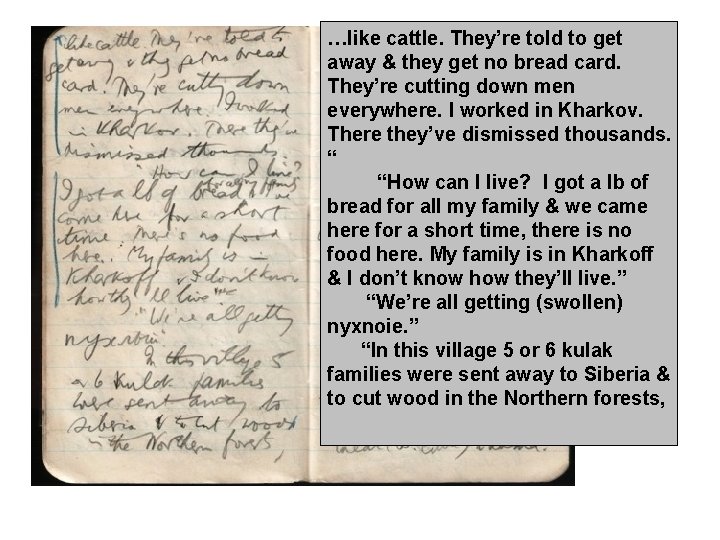 like cattle. They're told to
get away & they get no bread
card. They're cutting down
men everywhere. I worked
in Kharkov. There they've
dismissed thousands."
"How can I live?
I got a lb of bread
for all my family
& we
come here for a short
time. There's no food
here. My family is in
Kharkoff & I don't know
how they'll live."
"We're all getting
In this village 5
or 6 kulak families
were sent away to
Siberia & to cut wood
in the Northern forests,
…like cattle. They’re told to get
away & they get no bread card.
They’re cutting down men
everywhere. I worked in Kharkov.
There they’ve dismissed thousands.
“
“How can I live? I got a lb of
bread for all my family & we came
here for a short time, there is no
food here. My family is in Kharkoff
& I don’t know how they’ll live. ”
“We’re all getting (swollen)
nyxnoie. ”
“In this village 5 or 6 kulak
families were sent away to Siberia &
to cut wood in the Northern forests,